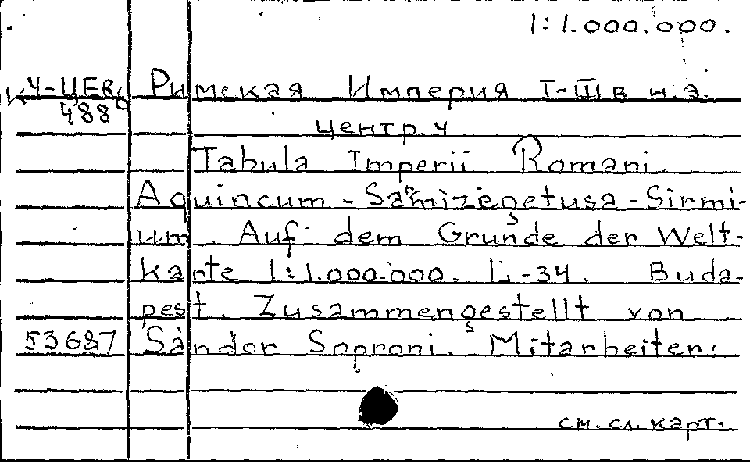 1:1.000.000.
К4-ЦЕВ. Римская Империя I-III в н.э.
488
центр. ч
Tabula Imperii Romani.
Aquincum - Sarmizegetusa - Sirmi-
um. Auf dem Grunde der Welt-
karte 1:1.000.000. L-34. Buda-
pest. Zusammengestellt von
53687 Sándor Soproni. Mitarbeiter:
см. сл. карт.